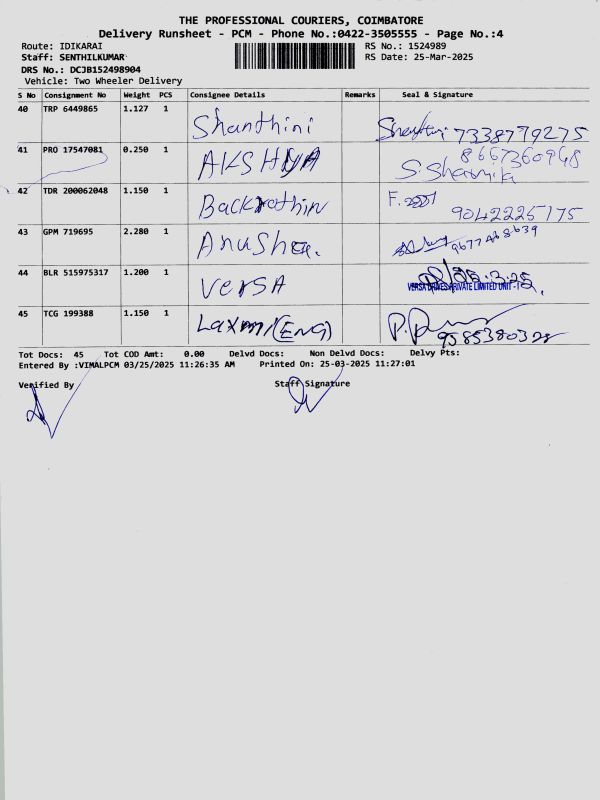 THE PROFESSIONAL COURIERS, COIMBATORE
Delivery Runsheet - PCM - Phone No.:0422-3505555 - Page No.:4
Route: IDIKARAI RS No.: 1524989
Staff: SENTHILKUMAR RS Date: 25-Mar-2025
DRS No.: DCJB152498904
Vehicle: Two Wheeler Delivery
S No Consignment No Weight PCS Consignee Details Remarks Seal & Signature
40 TRP 6449865 1.127 1 Shanthini 7338779275
41 PRO 17547081 0.250 1 AKSHYA 8667360948
S. Sharmika
42 TDR 200062048 1.150 1 Backrathin F.
9042225175
43 GPM 719695 2.280 1 Anusha.
44 BLR 515975317 1.200 1 VERSA VERSA DRIVES PRIVATE LIMITED UNIT -
45 TCG 199388 1.150 1 Laxmi (ENG) 9585380328
Tot Docs: 45 Tot COD Amt: 0.00 Delvd Docs: Non Delvd Docs: Delvy Pts:
Entered By :VIMALPCM 03/25/2025 11:26:35 AM Printed On: 25-03-2025 11:27:01
Verified By Staff Signature